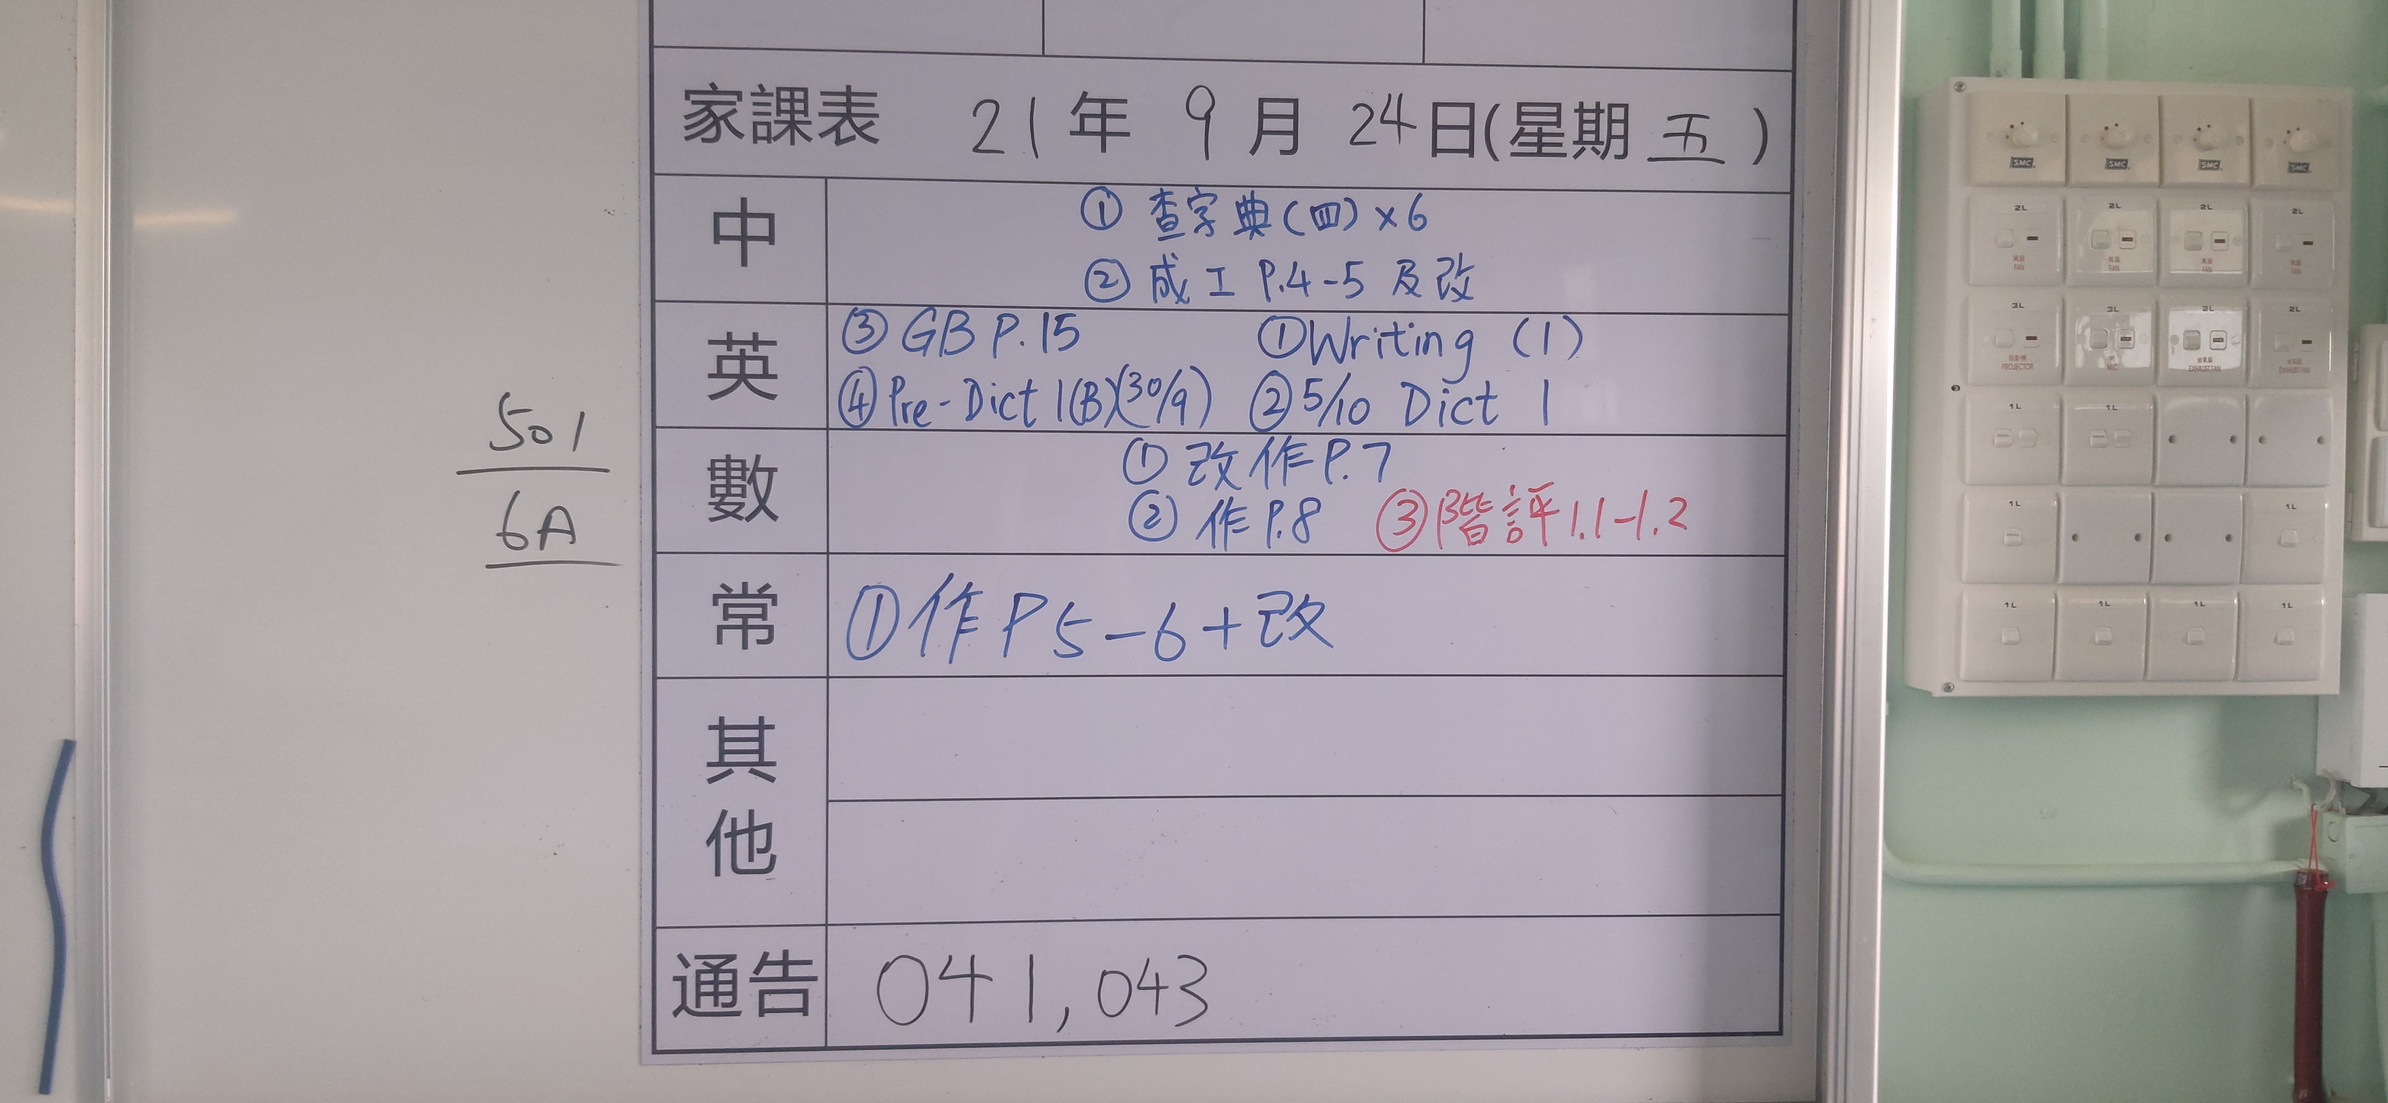 家課表 21年 9月 24日(星期五)
中
① 查字典(四)×6
② 成工 P.4-5 及改
英
③ GB P.15 ①Writing (1)
④ Pre-Dict 1(B)(30/9) ② 5/10 Dict 1
數
① 改作P.7
② 作P.8 ③階評1.1-1.2
常
①作P5-6+改
其他
通告
041,043
501
6A
SMC SMC SMC SMC
2L 2L 2L 2L
FAN FAN FAN FAN
3L 3L 2L 2L
PROJECTOR EXHAUST FAN EXHAUST FAN
1L 1L
1L 1L
1L 1L 1L 1L